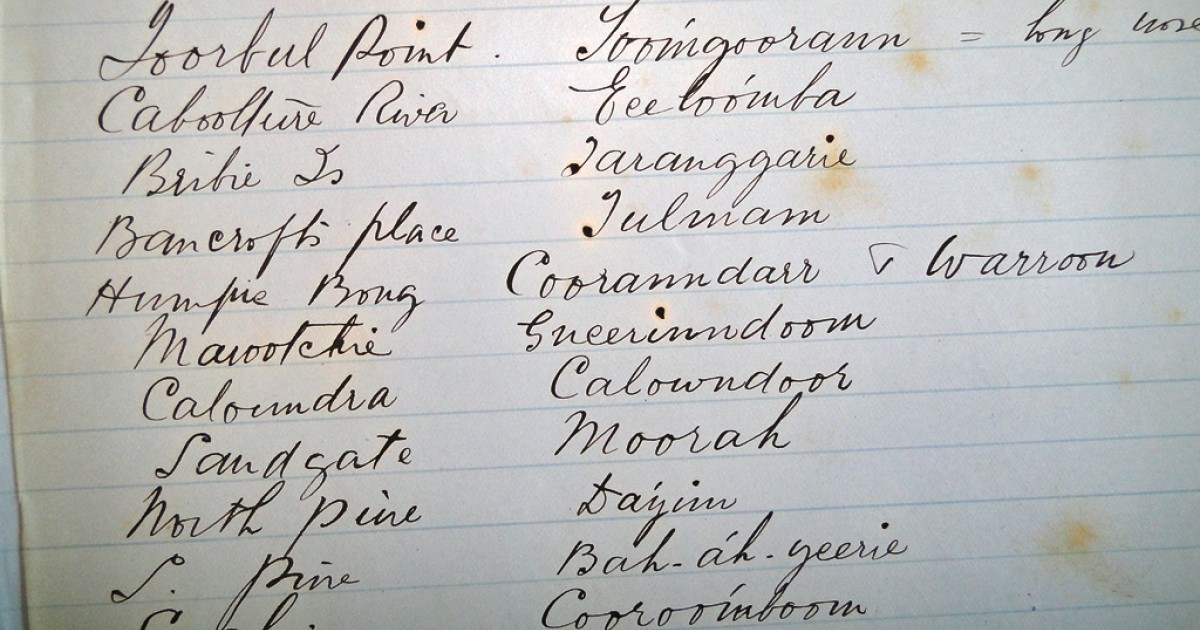 Toorbul Point. Tooingoorann = long nose
Caboolture River Eeetoómba
Bribie Is Taranggarie
Bancroft's place Tulmam
Humpie Bong Cooranndarr & Warroon
Mawootchie Gneerinndoom
Caloundra Calowndoor
Sandgate Moorah
North Pine Dayim
S. Pine Bah-áh-yeerie
Cooroomboom